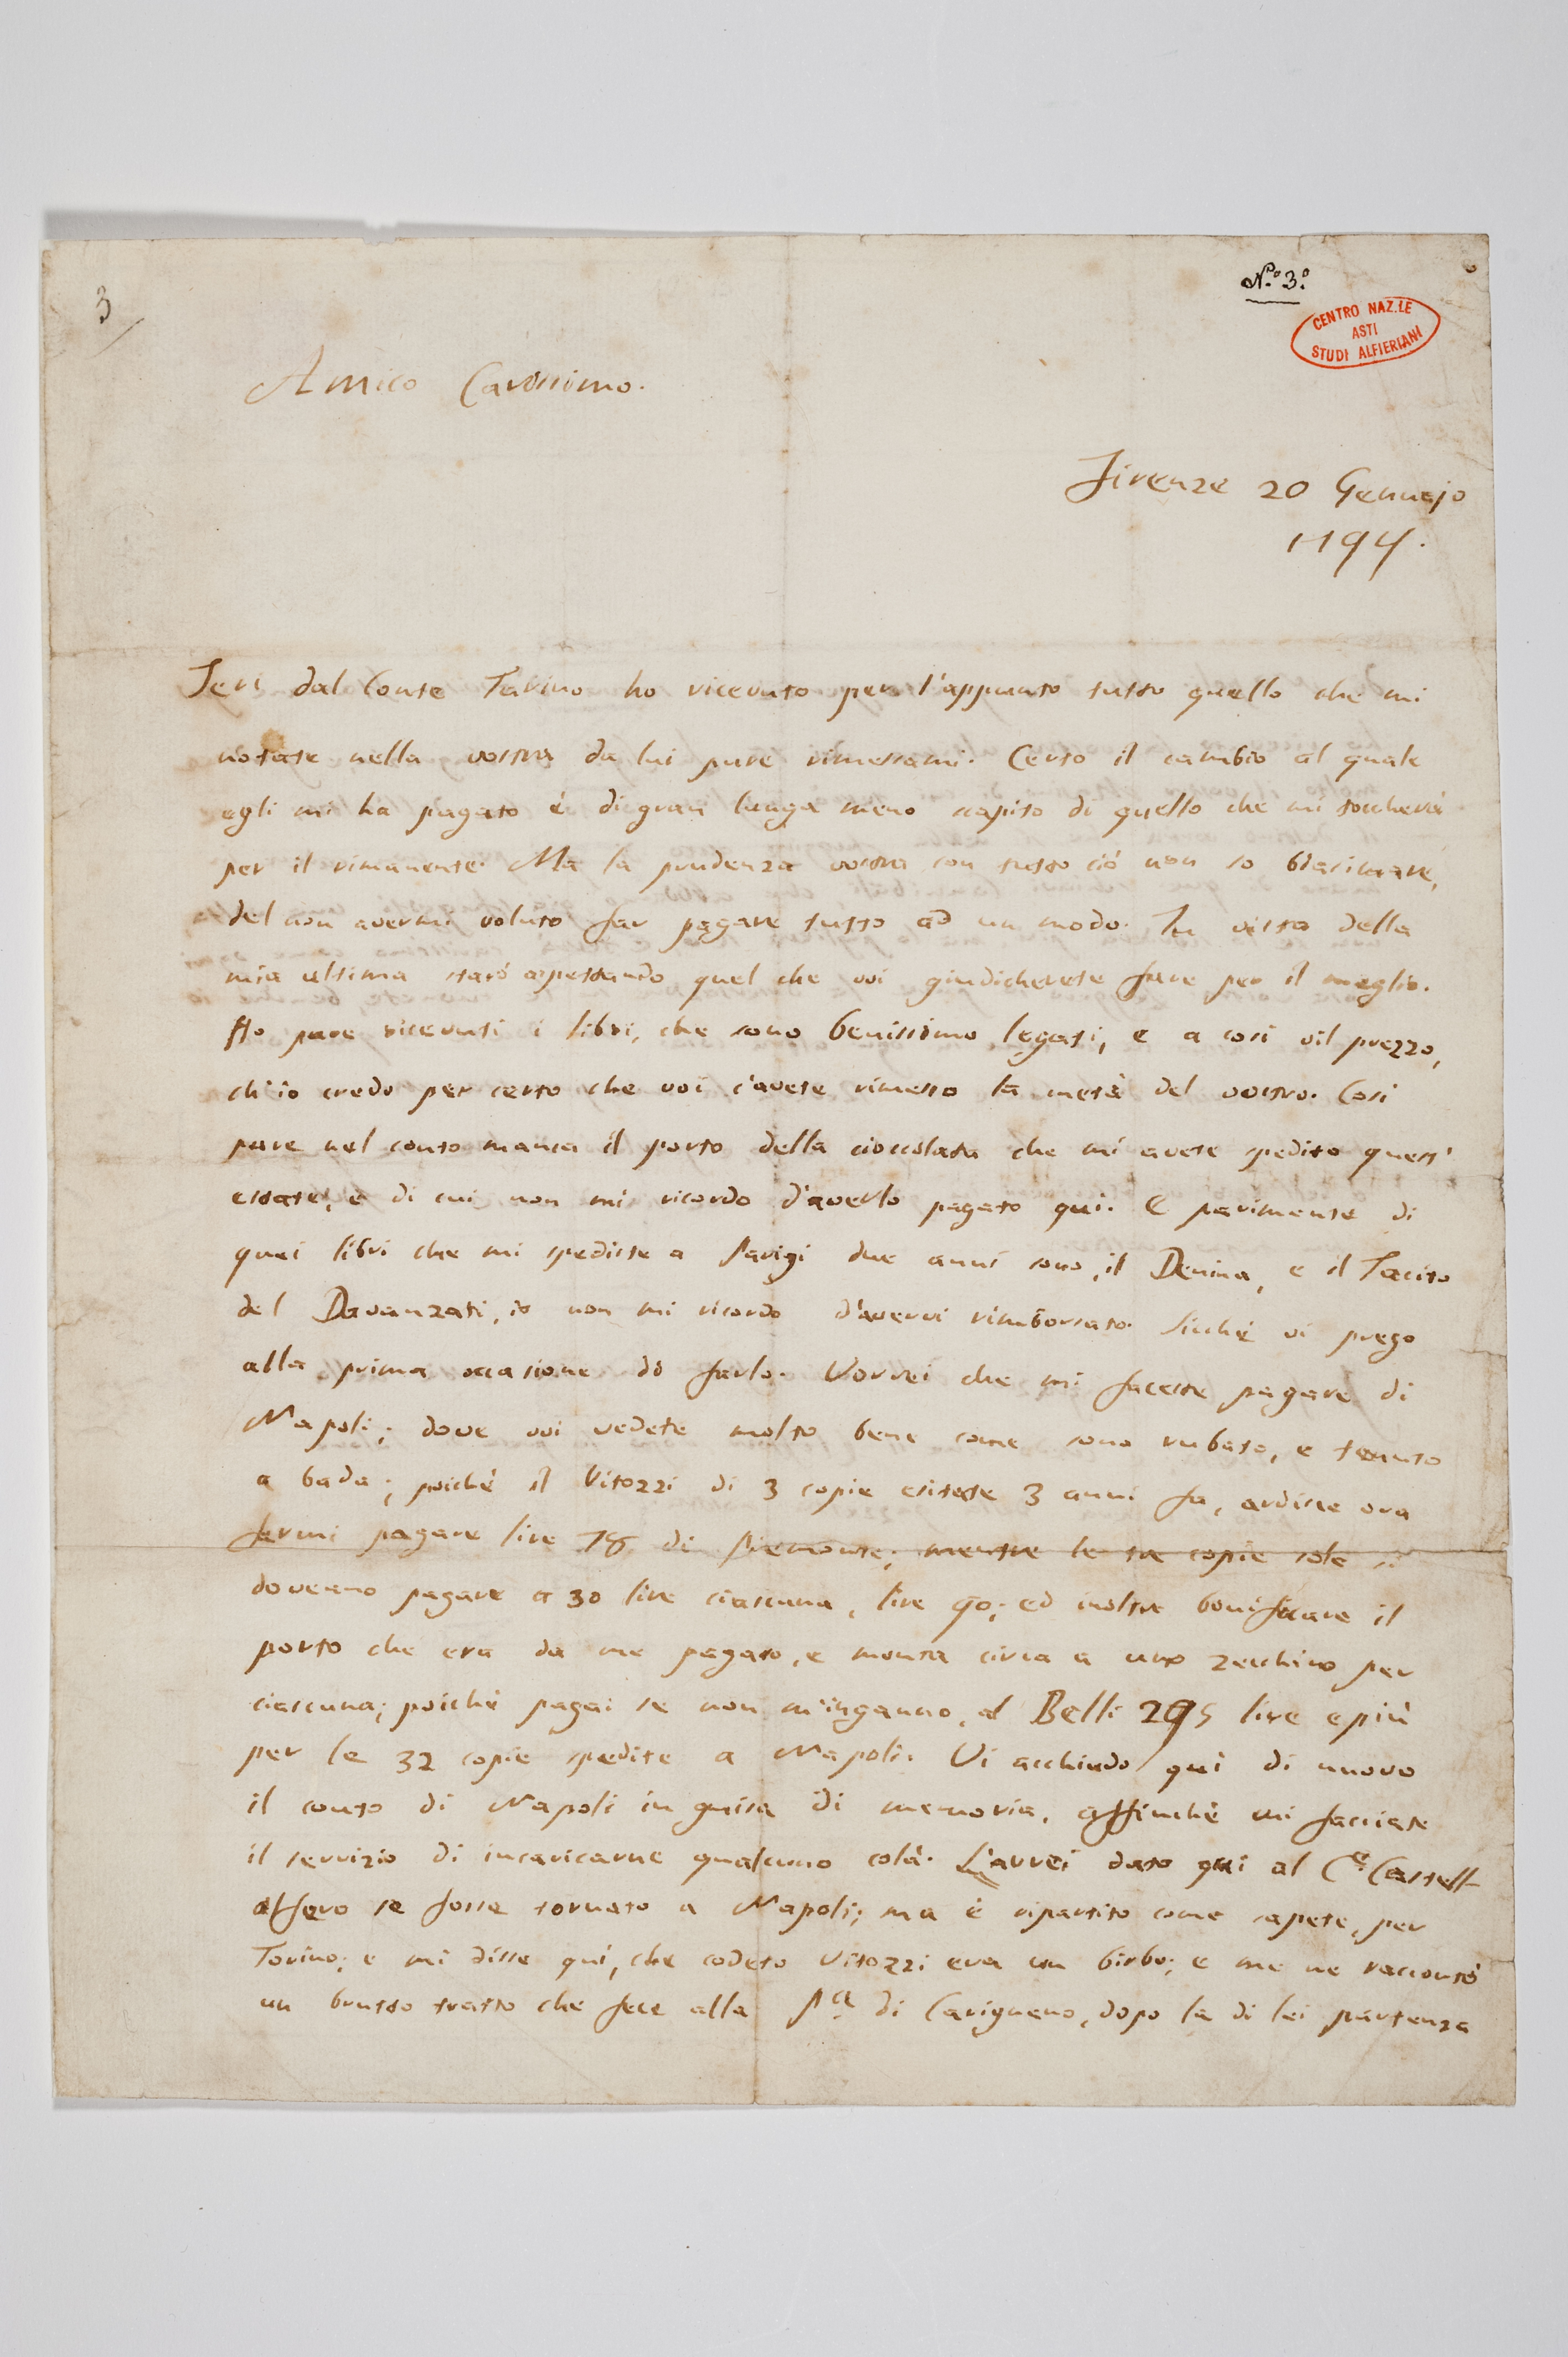 N.º 3.º
3
CENTRO NAZ.LE
ASTI
STUDI ALFIERIANI
Amico Carissimo.
Firenze 20 Gennajo
1794.
Jeri dal Conte Tarino ho ricevuto per l'appunto tutto quello che mi
notate nella vostra da lui pure rimessami. Certo il cambio al quale
egli mi ha pagato è di gran lunga meno scapito di quello che mi toccherà
per il rimanente. Ma la prudenza vostra con tutto ciò non so biasimare,
del non avermi voluto far pagare tutto ad un modo. In vista della
mia ultima starò aspettando quel che voi giudicherete fare per il meglio.
Ho pure ricevuti i libri, che sono benissimo legati, e a così vil prezzo,
ch'io credo per certo che voi c'avete rimesso la metà del vostro. Così
pure nel conto manca il porto della cioccolata che mi avete spedito quest'
estate, e di cui non mi ricordo d'averlo pagato qui. E parimente di
quei libri che mi spediste a Parigi due anni sono, il Denina, e il Tacito
del Davanzati, io non mi ricordo d'avervi rimborsato. Sicché vi prego
alla prima occasione di farlo. Vorrei che mi faceste pagare di
Napoli; dove voi vedete molto bene come sono rubato, e tenuto
a bada; poiché il Vitozzi di 3 copie esitate 3 anni fa, ardisce ora
farmi pagare lire 78 di Piemonte; mentre le tre copie sole si
doveano pagare a 30 lire ciascuna, lire 90; ed inoltre bonificare il
porto che era da me pagato, e monta circa a uno zecchino per
ciascuna; poiché pagai se non m'inganno, al Belli 295 lire e più
per le 32 copie spedite a Napoli. Vi acchiudo quì di nuovo
il conto di Napoli in guisa di memoria, affinché mi facciate
il servizio di incaricarne qualcuno colà. L'avrei dato quì al C.e Castell-
alfero se fosse tornato a Napoli; ma è ripartito come sapete, per
Torino; e mi disse quì, che codesto Vitozzi era un birbo; e me ne raccontò
un brutto tratto che fece alla P.a di Carignano, dopo la di lei partenza